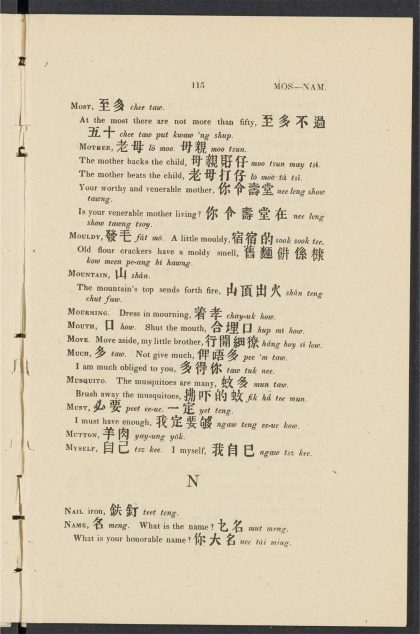 115 MOS—NAM.
Most, 至多 chee taw.
At the most there are not more than fifty, 至多不過
五十 chee taw put kwaw 'ng shup.
Mother, 老母 lô moo. 母親 moo tsun.
The mother backs the child, 母親孭仔 moo tsun may tsi.
The mother beats the child, 老母打仔 lô moo tà tsi.
Your worthy and venerable mother, 你令壽堂 nee leng show
tawng.
Is your venerable mother living? 你令壽堂在 nee leng
show tawng tsoy.
Mouldy, 發毛 fàt mò. A little mouldy, 宿宿的 sook sook tee.
Old flour crackers have a moldy smell, 舊麵餅係
kow meen peang hi hawng.
Mountain, 山 shân.
The mountain's top sends forth fire, 山頂出火 shân teng
chut faw.
Mourning. Dress in mourning, 着孝 chay-uk how.
Mouth, 口 how. Shut the mouth, 合埋口 hup mi how.
Move. Move aside, my little brother, 行開細 háng hoy si low.
Much, 多 taw. Not give much, 俾唔多 pee 'm taw.
I am much obliged to you, 多得你 taw tuk nee.
Musquito. The musquitoes are many, 蚊多 mun taw.
Brush away the musquitoes, 拂吓的蚊 fik há tee mun.
Must, 必要 peet ee-ue. 一定 yet teng.
I must have enough, 我定要够 ngaw teng ee-ue kow.
Mutton, 羊肉 yay-ung yôk.
Myself, 自己 tsz kee. I myself, 我自己 ngaw tsz kee.
N
Nail iron, 鉄釘 teet teng.
Name, 名 meng. What is the name? 乜名 mut meng.
What is your honorable name? 你大名 nee tài ming.